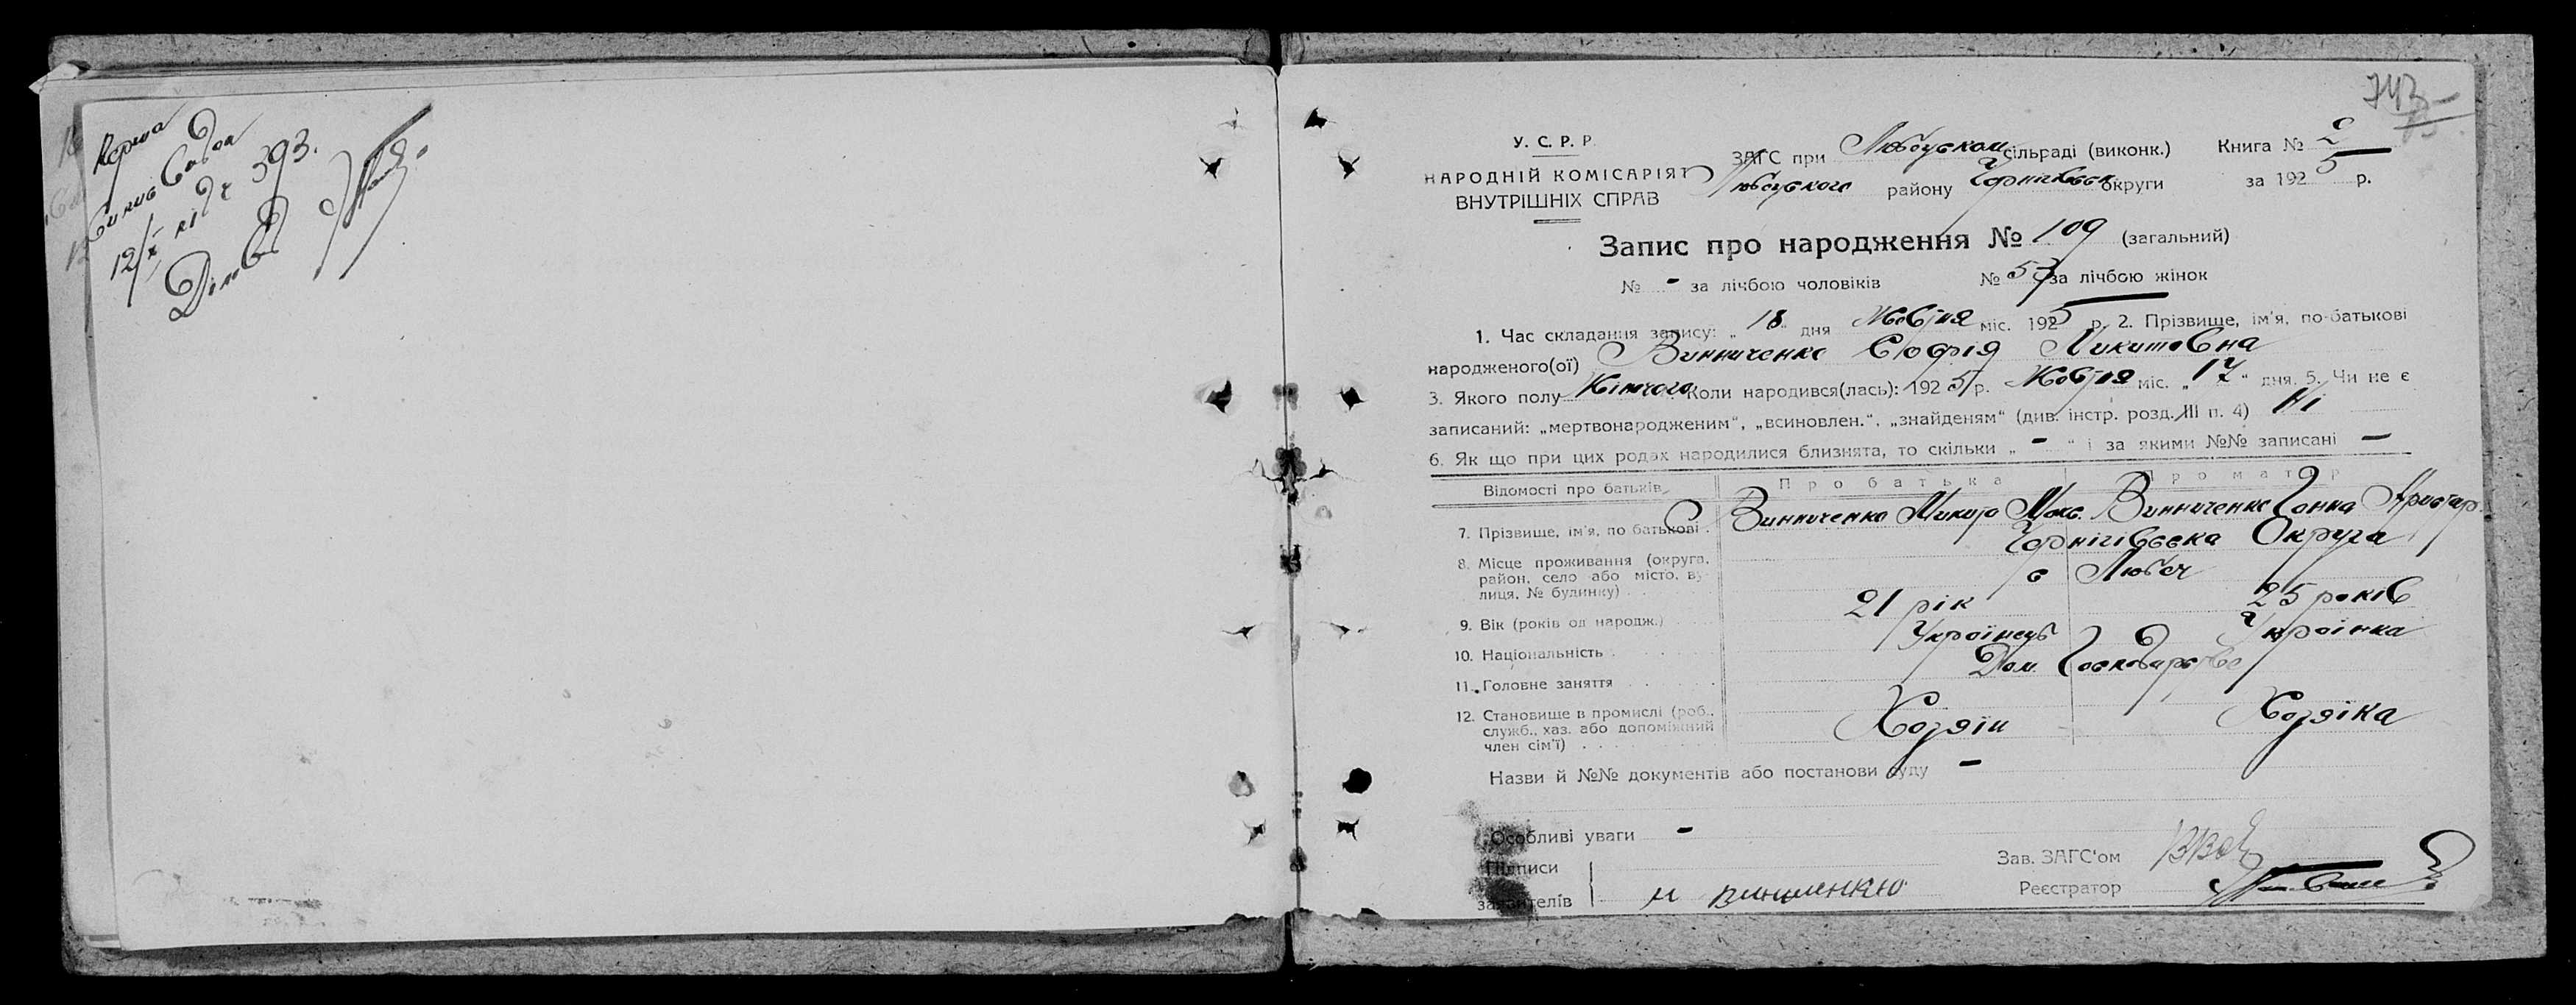 393.
743
У. С. Р. Р.
НАРОДНІЙ КОМІСАРІЯТ
ВНУТРІШНІХ СПРАВ
ЗАГС при Любецьком сільраді (виконк.) Книга № 2
Любецького району Чернігівськ округи за 1925 р.
Запис про народження № 109 (загальний)
№ - за лічбою чоловіків № 53 за лічбою жінок
1. Час складання запису: „18" дня Жовтня міс. 1925 р. 2. Прізвище, ім'я, по-батькові
народженого(ої) Винниченко Софія Микитовна
3. Якого полу Жіночого Коли народився(лась): 1925 р. Жовтня міс. „17" дня. 5. Чи не є
записаний: „мертвонародженим", „всиновлен.", „знайденям" (див. інстр. розд. III п. 4) Ні
6. Як що при цих родах народилися близнята, то скільки „ - " і за якими №№ записані —
Відомості про батьків Про батька Про матір
7. Прізвище, ім'я, по батькові Винниченко Микита Макс. Винниченко Ганна Аристар.
8. Місце проживання (округа, Чернігівська Округа
район, село або місто, ву- с Любеч
лиця, № будинку)
9. Вік (років од народж.) 21 рік 25 років
10. Національність Українець Українка
11. Головне заняття Дом. Господарство
12. Становище в промислі (роб.,
служб., хаз. або допоміжний Хозяїн Хозяїка
член сім'ї)
Назви й №№ документів або постанови суду —
Особливі уваги -
Підписи Зав. ЗАГС'ом
заявителів М Винниченко Реєстратор